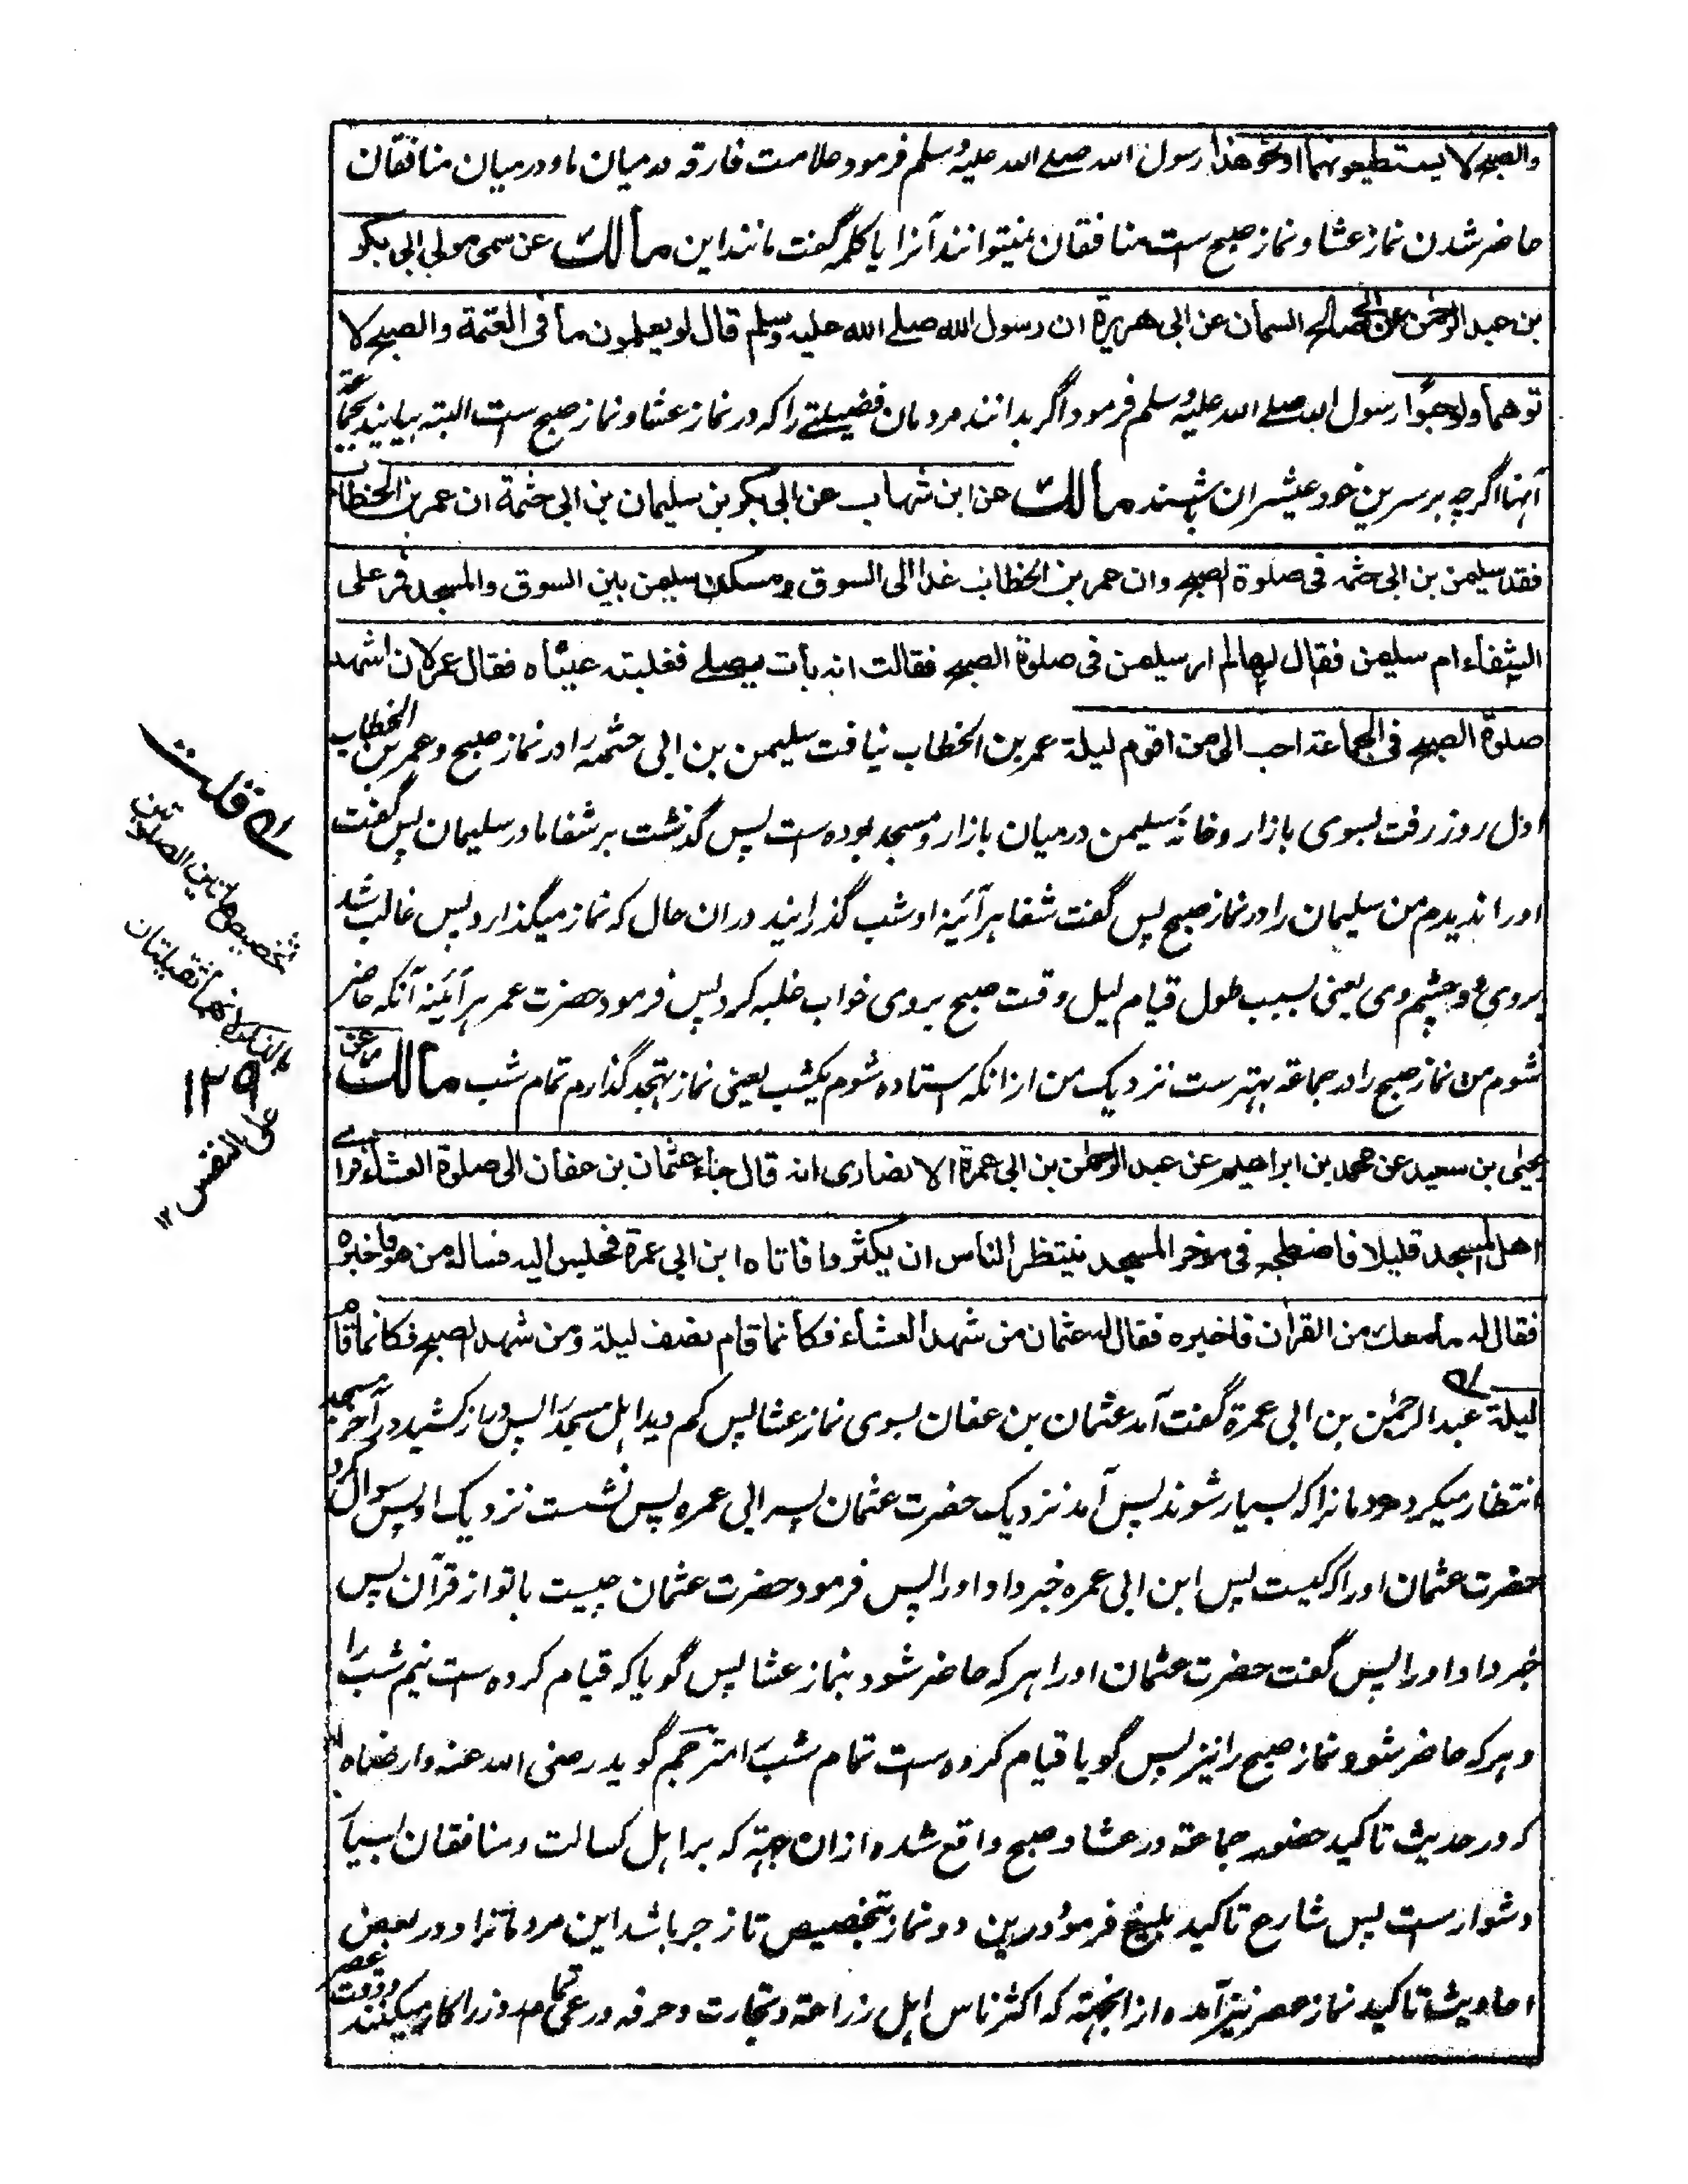 والصبح لا يستطيعونهما او نحو هذا رسول الله صلے الله علیہ وسلم فرمود علامت فارقہ درمیان ما و درمیان منافقان
حاضر شدن نماز عشا و نماز صبح ست منافقان نمیتوانند آنرا یا کلمہ گفت مانند این مالك عن سمى مولى ابى بكر
بن عبد الرحمن عن ابى صالح السمان عن ابى هريرة ان رسول الله صلے الله عليه وسلم قال لو يعلمون ما فى العتمة والصبح لا
توهما ولو حبوا رسول الله صلے الله علیہ وسلم فرمود اگر بدانند مردمان فضیلتے را کہ در نماز عشا و نماز صبح ست البتہ بیایند بجماعۃ
آنہا اگرچہ بر سرین خود عیشران باشند مالك عن ابن شهاب عن ابى بكر بن سليمان بن ابى حثمة ان عمر بن الخطاب
فقد سليمن بن ابى حثمه فى صلوة الصبح وان عمر بن الخطاب غدا الى السوق ومسكن سليمن بين السوق والمسجد فمر على
الشفاء ام سليمن فقال لها لم ار سليمن فى صلوة الصبح فقالت انه بات يصلے فغلبته عيناه فقال عمر لان اشهد
صلوة الصبح فى الجماعة احب الى من اقوم ليلة عمر بن الخطاب نیافت سلیمن بن ابی حثمہ را در نماز صبح و عمر بن الخطاب
اول روز رفت بسوی بازار و خانۂ سلیمن درمیان بازار و مسجد بودہ ست پس گذشت بر شفا مادر سلیمان پس گفت
اورا ندیدم من سلیمان را در نماز صبح پس گفت شفا ہر آئینہ او شب گذرانید دران حال کہ نماز میگذارد پس غالب شد
بروی دو چشم وی یعنی بسبب طول قیام لیل وقت صبح بروی خواب غلبہ کرد پس فرمود حضرت عمر ہر آئینہ آنکہ حاضر
شوم من نماز صبح را در جماعۃ بہتر ست نزدیک من ازانکہ ستادہ شوم یکشب یعنی نماز تہجد گذارم تمام شب مالك عن
يحيى بن سعيد عن محمد بن ابراهيم عن عبد الرحمن بن ابى عمرة الانصارى انه قال جاء عثمان بن عفان الى صلوة العشاء فراے
اهل المسجد قليلا فاضطجع فى مؤخر المسجد ينتظر الناس ان يكثروا فاتاه ابن ابى عمرة فجلس اليه فساله من هو فاخبره
فقال له ما معك من القران فاخبره فقال له عثمان من شهد العشاء فكأنما قام نصف ليلة ومن شهد الصبح فكانما قام
ليلة عبد الرحمن بن ابی عمرۃ گفت آمد عثمان بن عفان بسوی نماز عشا پس کم دید اہل مسجد را پس دراز کشید در آخر مسجد
انتظار میکرد مردمانرا کہ بسیار شوند پس آمد نزدیک حضرت عثمان پسر ابی عمرہ پس نشست نزدیک او پس سوال کرد
حضرت عثمان اورا کہ کیست پس ابن ابی عمرہ خبر داد اورا پس فرمود حضرت عثمان چیست با تو از قرآن پس
خبر داد اورا پس گفت حضرت عثمان اورا ہر کہ حاضر شود بنماز عشا پس گویا کہ قیام کردہ ست نیم شب را
و ہر کہ حاضر شود نماز صبح را نیز پس گویا قیام کردہ ست تمام شب را مترجم گوید رضی الله عنه وارضاه
کہ در حدیث تاکید حضور جماعۃ در عشا و صبح واقع شدہ ازان جہتہ کہ بر اہل کسالت و منافقان بسیار
دشوار ست پس شارع تاکید بلیغ فرمود درین دو نماز بتخصیص تا زجر باشد این مردمانرا و در بعض
احادیث تاکید نماز عصر نیز آمدہ ازانجہتہ کہ اکثر ناس اہل زراعۃ و تجارت و حرفہ در تمام روز را کار میکنند ووقت عصر
قلت
تخصيص هاتين الصلوتين
بالذكر لانهما ثقيلتان
على النفس ١٢
١٢٩